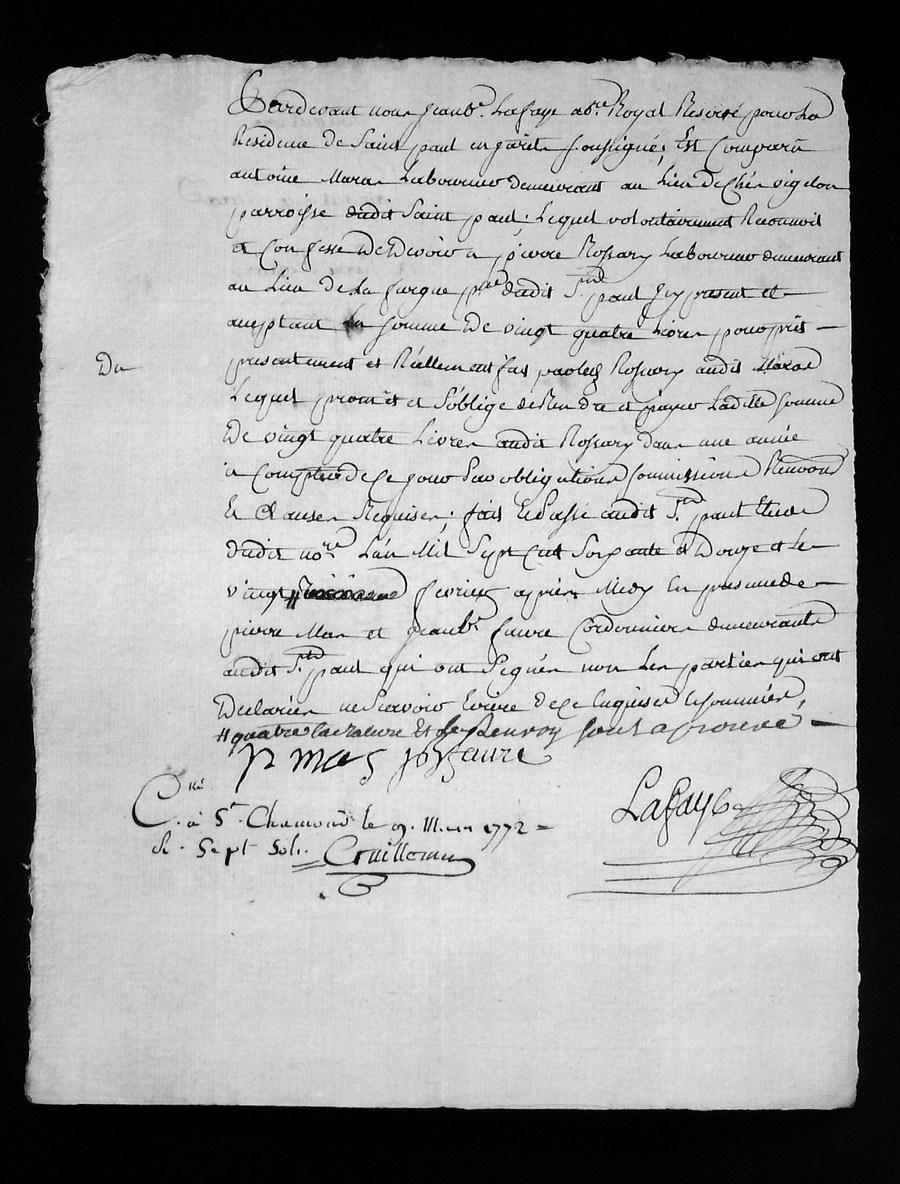 Pardevant nous Jean Bte. Lafaye nore. Royal Reservé pour La
Residence de Saint paul en jarets soussigné; Est Comparu
antoine Maras Laboureur demeurant au Lieu de
parroisse dudit Saint paul; Lequel volontairement Reconnoit
et Confesse De Devoir a pierre Rossary Laboureur demeurant
au Lieu de La fargue psse dudit St. paul Jcy present et
acceptant La somme De vingt quatre Livres pour prêt
presentement et Réellement fait par Led Rossary audit Maras
Lequel promet et S'oblige de Rendre et payer Laditte somme
De vingt quatre Livres audit Rossary dans une année
a Compter de Ce jour Par obligations Soumissions Renvons
Et Clauses Requises; fait Et Passé audit St. paul Etude
Dudit nore. L'an Mil Sept Cent Soixante et Douze et Le
vingt // fevrier apres Midy En presence de
pierre Mas et Jean Bte faure Cordonniers demeurants
audit St. paul qui ont Signés non Les parties qui ont
Declarées ne Scavoir Ecrire de Ce Enquises et Sommées,
// quatre La rature Et Le Renvoy Sont aprouvé,
Du
P mas JB faure
Lafaye
C. à St. Chamond le 9. Mars 1772
R. Sept Sols.